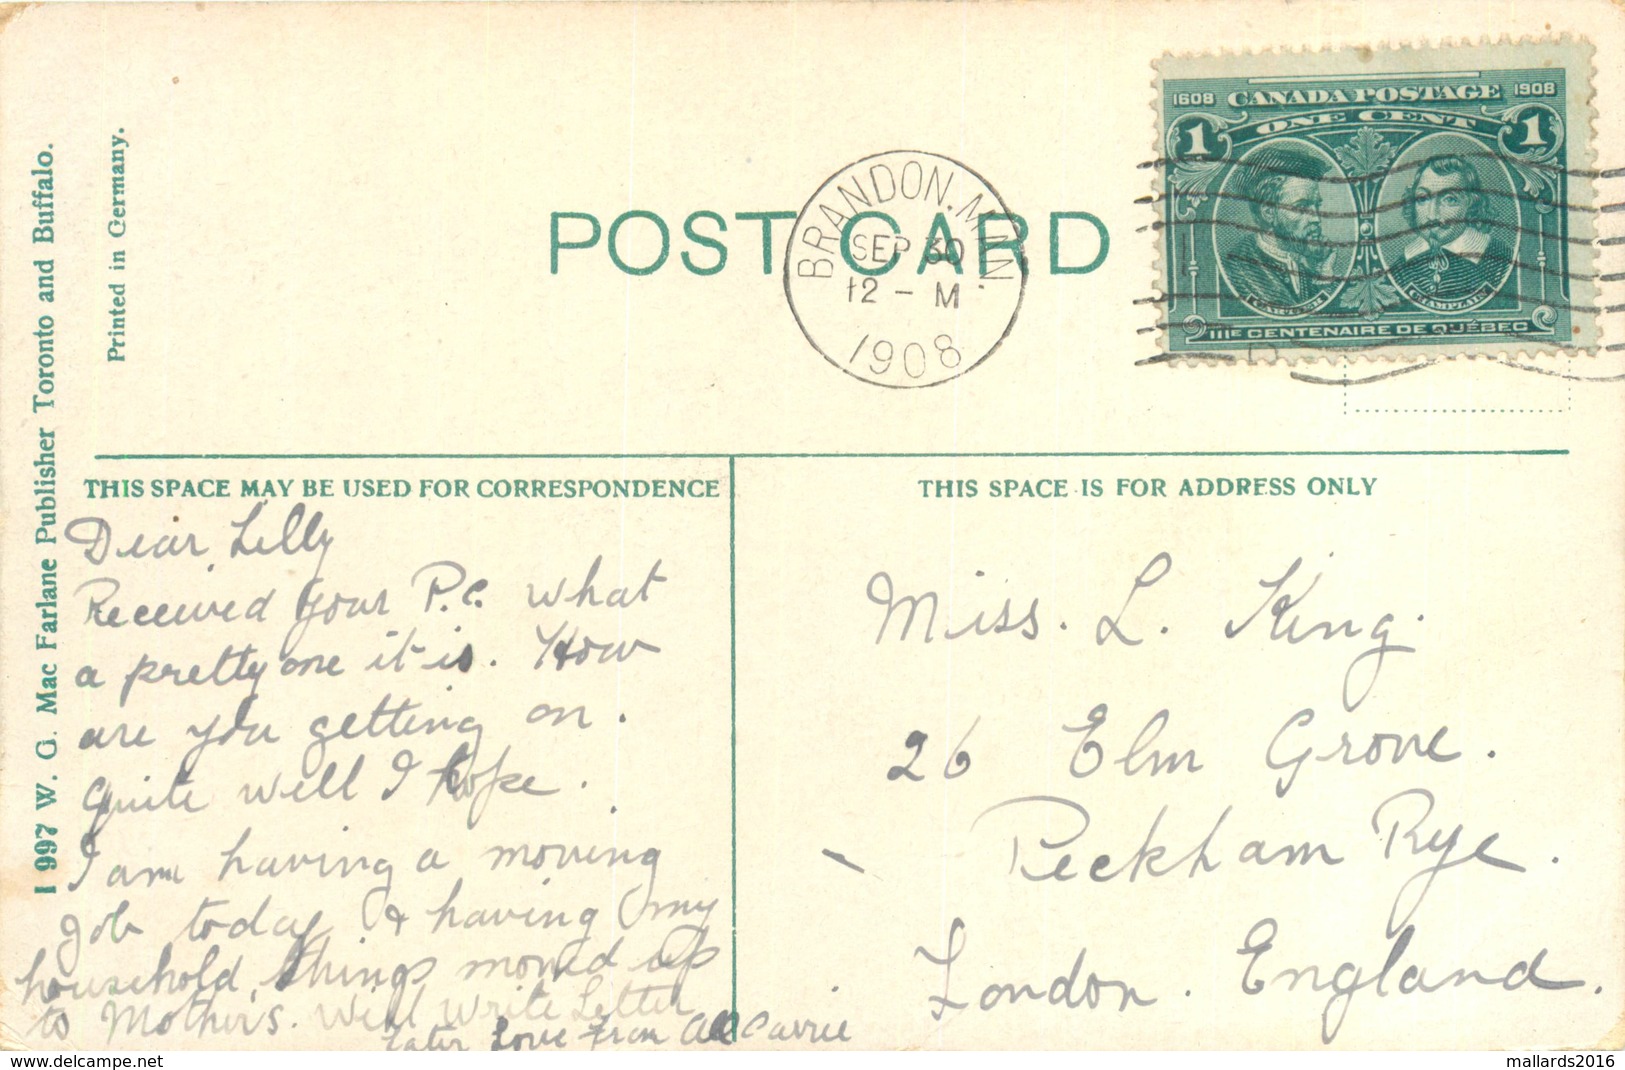 I 997 W. G. Mac Farlane Publisher Toronto and Buffalo.
Printed in Germany.
POST CARD
BRANDON. MAN.
SEP 30
12 - M
1908
1608 CANADA POSTAGE 1908
1 ONE CENT 1
CARTIER CHAMPLAIN
IIIE CENTENAIRE DE QUÉBEC
THIS SPACE MAY BE USED FOR CORRESPONDENCE
Dear Lilly
Received your P.C. what
a pretty one it is. How
are you getting on.
Quite well I hope.
I am having a moving
Job today & having my
household things moved up
to Mother's. Will write Letter
Later Love From All Carrie
THIS SPACE IS FOR ADDRESS ONLY
Miss. L. King.
26 Elm Grove.
Peckham Rye.
London. England.
delcampe.net
mallards2016